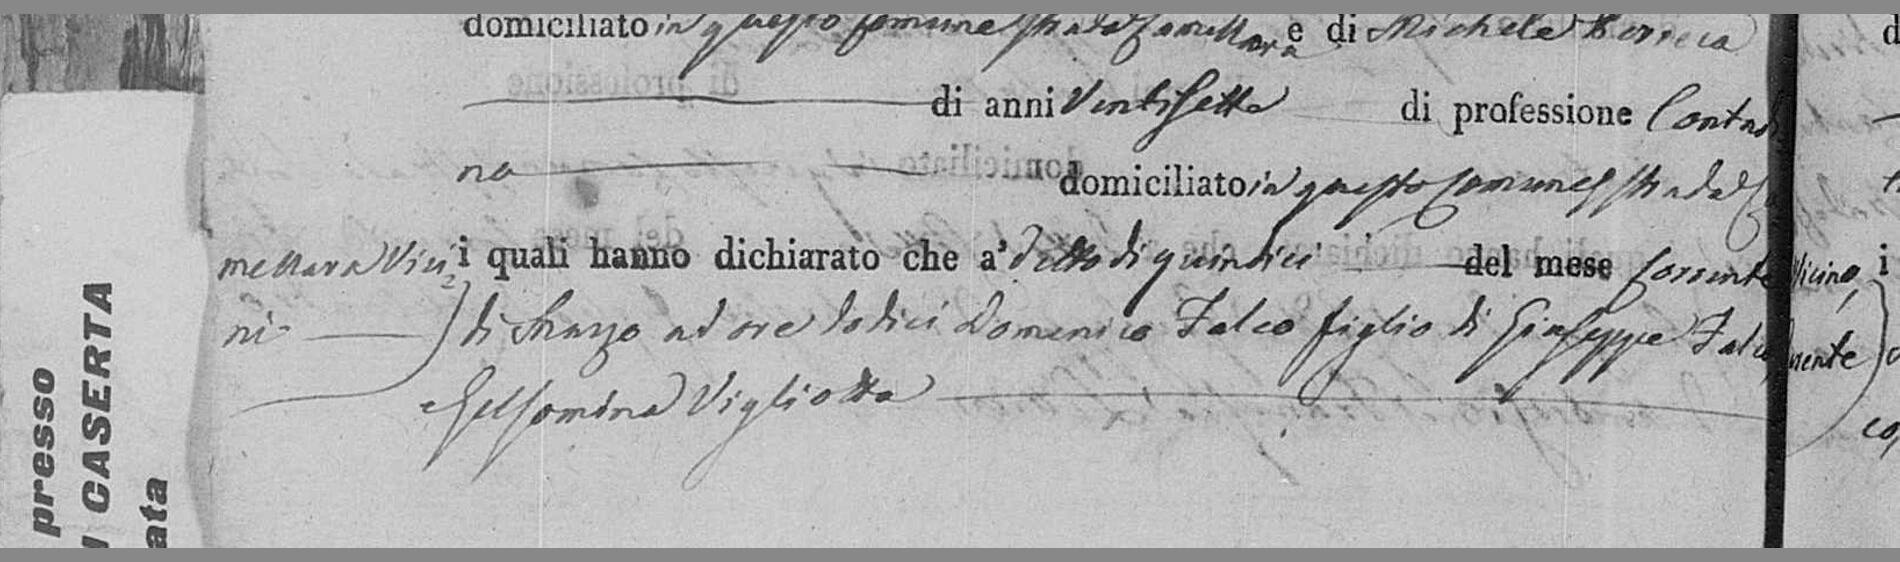 domiciliato in questo Comune strada Camellara e di Michele
di anni Ventisette di professione Contadi
no domiciliato in questo Comune strada Ca
mellara Vici i quali hanno dichiarato che a' detto dì quindici del mese corrente
ni di Marzo ad ore dodici Domenico Falco figlio di Giuseppe Falco
e Gelsomina Vigliotta
presso
CASERTA
ata